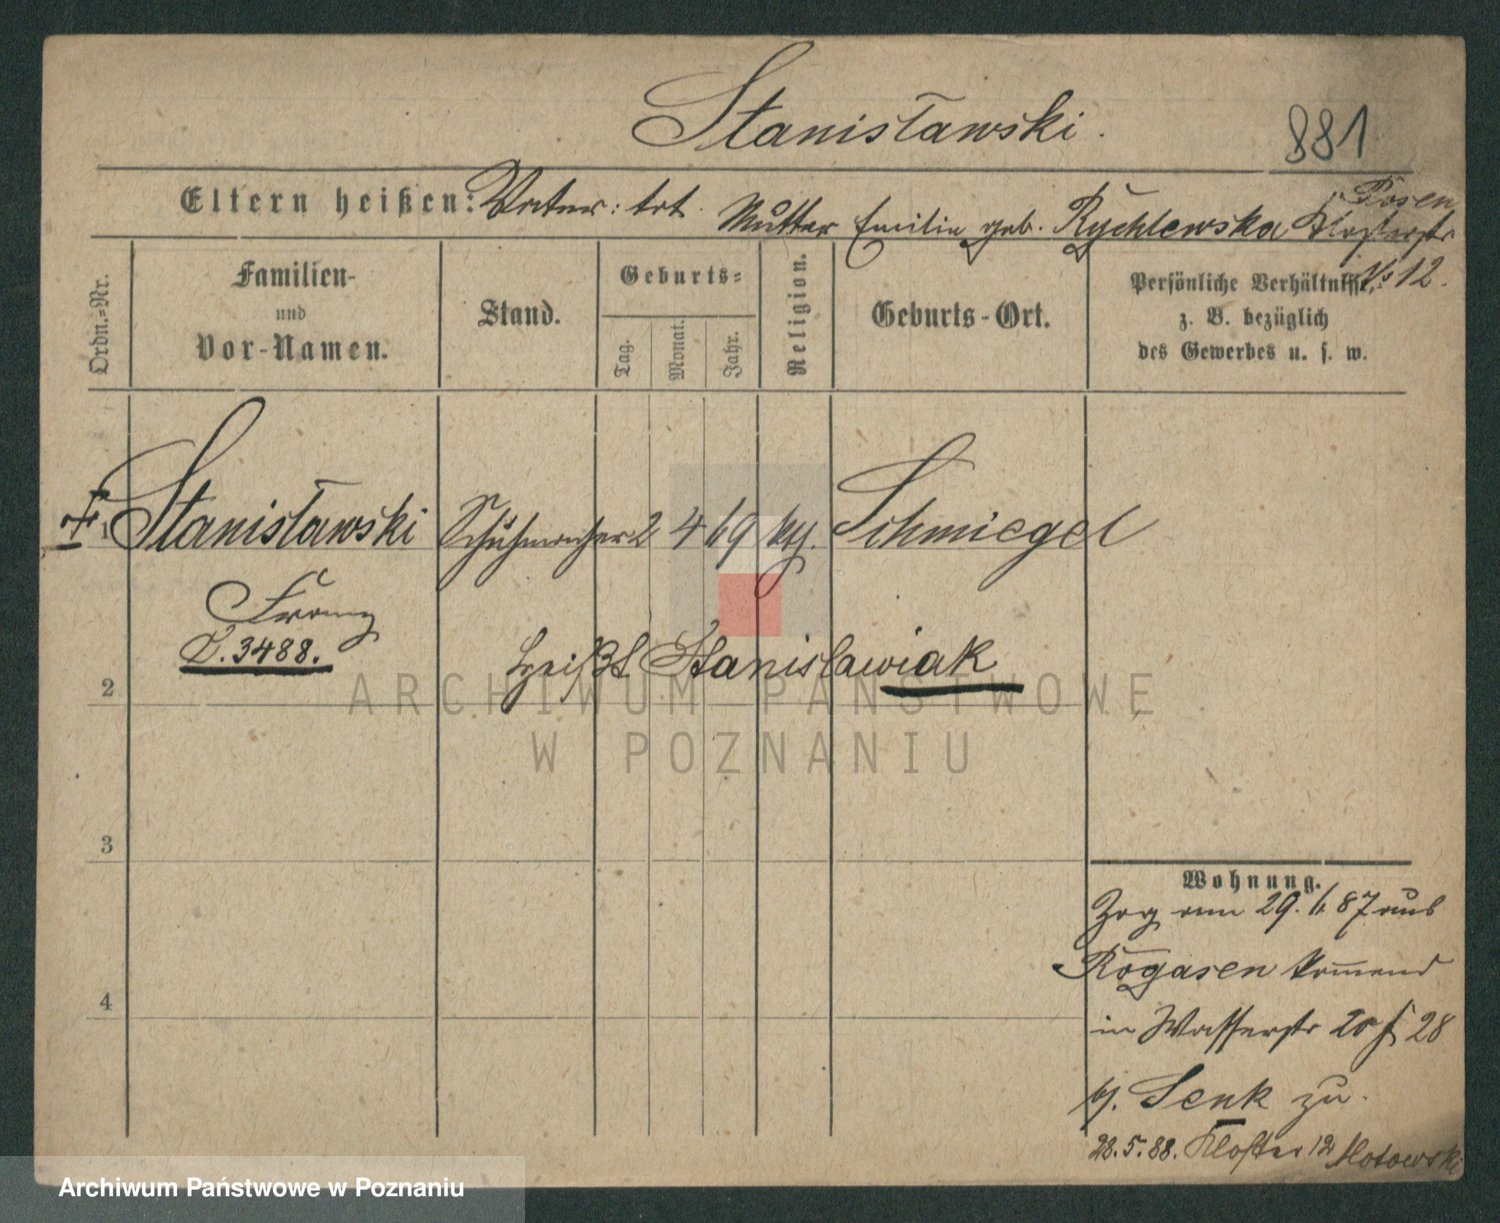 Stanisławski.
881
Eltern heißen: Vater: tot. Mutter Emilie geb. Rychlewska Posen Klosterstr
No 12.
Ordn.-Nr.
Familien-
und
Vor-Namen.
Stand.
Geburts-
Tag.
Monat.
Jahr.
Religion.
Geburts-Ort.
Persönliche Verhältnisse,
z. B. bezüglich
des Gewerbes u. s. w.
1 Stanisławski Schuhmacher 2 4 69 Schmiegel
Franz
D. 3488.
heißt Stanislawiak
2
3
4
Wohnung.
Zog am 29. 87 aus
Rogasen komend
in Wasserstr 28
Senk zu.
28. 5. 88. Kloster 12 Motowski
ARCHIWUM PAŃSTWOWE
W POZNANIU
Archiwum Państwowe w Poznaniu